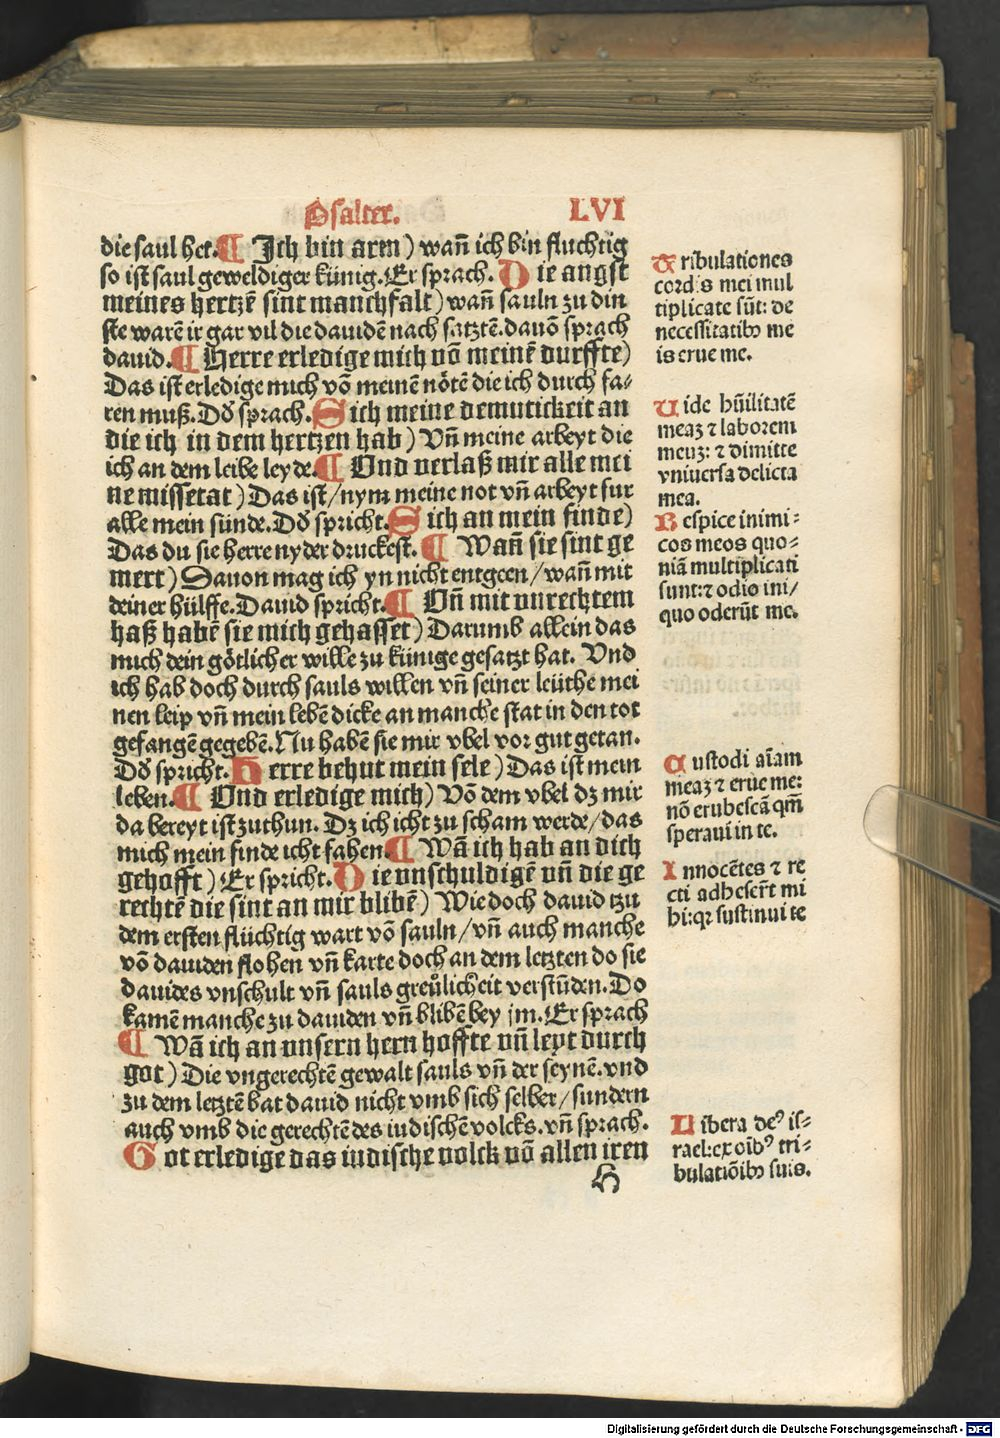 Psalter. LVI
die saul het. ¶ Ich bin arm) wañ ich bin fluchtig
so ist saul geweldiger künig. Er sprach. Die angst
meines hertzē sint manchfalt) wañ sauln zu din
ste warē ir gar vil die dauidē nach satztē. dauō sprach
dauid. ¶ Herre erledige mich vō meinē durffte)
Das ist erledige mich vō meinē nötē die ich durch fa/
ren muß. Dð sprach. Sich meine demutickeit an
die ich in dem hertzen hab) Vñ meine arbeyt die
ich an dem leibe leyde. ¶ Vnd verlaß mir alle mei
ne missetat) Das ist/nym meine not vñ arbeyt fur
alle mein sünde. Dð spricht. Sich an mein finde)
Das du sie herre nyder druckest. ¶ Wañ sie sint ge
mert) Dauon mag ich yn nicht entgeen/wañ mit
deiner hülffe. Dauid spricht. ¶ Vñ mit vnrechtem
haß habē sie mich gehasset) Darumb allein das
mich dein götlicher wille zu künige gesatzt hat. Vnd
ich hab doch durch sauls willen vñ seiner leüthe mei
nen leip vñ mein lebē dicke an manche stat in den tot
gefangē gegebē. Nu habē sie mir vbel vor gut getan.
Dð spricht. Herre behut mein sele) Das ist mein
leben. ¶ Vnd erledige mich) Vō dem vbel dz mir
da bereyt ist zuthun. Dz ich icht zu scham werde/das
mich mein finde icht fahen. ¶ Wā ich hab an dich
gehofft) Er spricht. Die vnschuldigē vñ die ge
rechtē die sint an mir blibē) Wie doch dauid tzu
dem ersten flüchtig wart vō sauln/vñ auch manche
vō dauiden flohen vñ karte doch an dem letzten do sie
dauides vnschult vñ sauls greuͦlicheit verstūden. Do
kamē manche zu dauiden vñ blibē bey jm. Er sprach
¶ Wā ich an vnsern hern hoffte vñ leyt durch
got) Die vngerechtē gewalt sauls vñ der seynē. vnd
zu dem letztē bat dauid nicht vmb sich selber/sundern
auch vmb die gerechtē des iudischē volcks. vñ sprach.
Got erledige das iudische volck vō allen iren
H
Tribulationes
cordis mei mul
tiplicate sūt: de
necessitatibꝫ me
is erue me.
Uide hūilitatē
meaꝫ ⁊ laborem
meuꝫ: ⁊ dimitte
vniuersa delicta
mea.
Respice inimi⸗
cos meos quo⸗
niā multiplicati
sunt:⁊ odio ini/
quo oderūt me.
Custodi aīam
meaꝫ ⁊ erue me:
nō erubescā qm̄
speraui in te.
Innocētes ⁊ re
cti adheser̄t mi
hi:qꝛ sustinui te
Libera deꝰ is⸗
rael:ex oībꝰ tri⸗
bulatiōibꝫ suis.
Digitalisierung gefördert durch die Deutsche Forschungsgemeinschaft - DFG